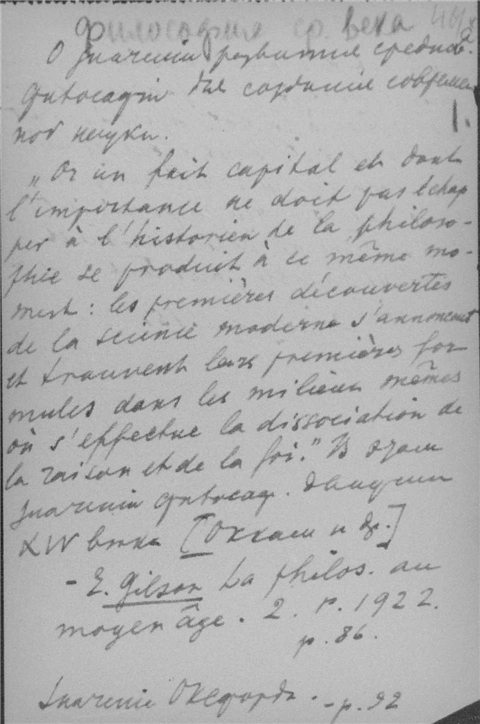 Философия ср. века
О значении развития средн.
философии для создания современ
ной науки.
1.
„Or un fait capital et dont
l'importance ne doit pas échap
per à l'historien de la philoso-
phie se produit à ce même mo-
ment: les premières découvertes
de la science moderne s'annoncent
et trouvent leurs premières for
mules dans les milieux mêmes
où s'effectue la dissociation de
la raison et de la foi." В этом
значении философ. данушии
XIV века [Оккам и др.]
- E. Gilson La philos. au
moyen âge. 2. P. 1922.
p. 86.
Значение Оксфорда. - p. 92